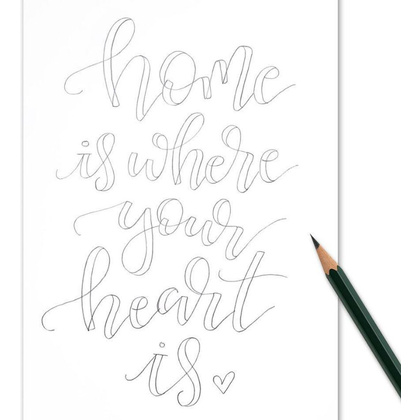 home
is where
your
heart
is ♡